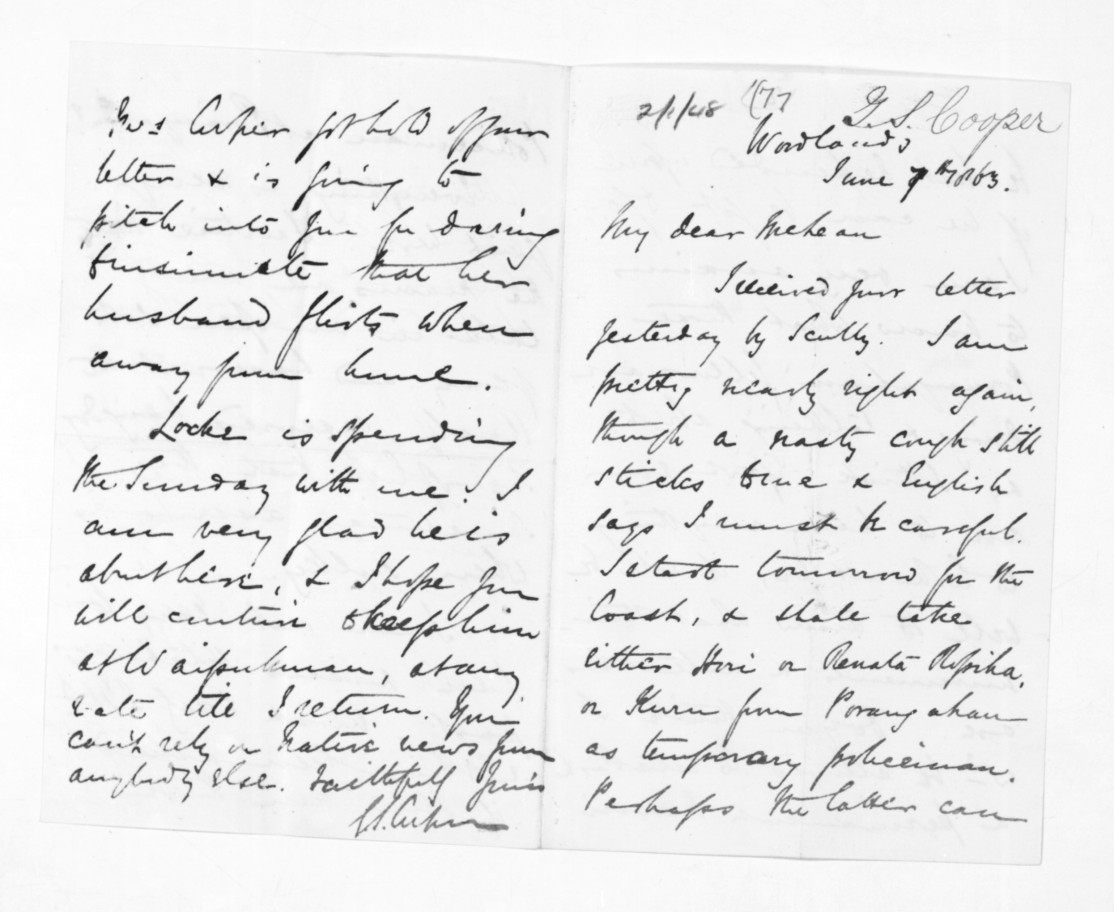 2/1/48
177
G. S. Cooper
Woodlands
June 7th 1863.
My dear McLean
I received your letter
yesterday by Scully. I am
pretty nearly right again,
though a nasty cough still
sticks to me & English
says I must be careful.
I start tomorrow for the
Coast, & shall take
either Hori or Renata Ropiha,
or Kuru from Porangahau
as temporary policeman.
Perhaps the latter can
Mrs Cooper got hold of your
letter & is going to
pitch into you for daring
to insinuate that her
husband flirts when
away from home.
Locke is spending
the Sunday with me. I
am very glad he is
about here, & I hope you
will continue to keep him
at Waipukurau, at any
rate till I return. You
can't rely on Native news from
anybody else. Faithfully Yours
G.S. Cooper